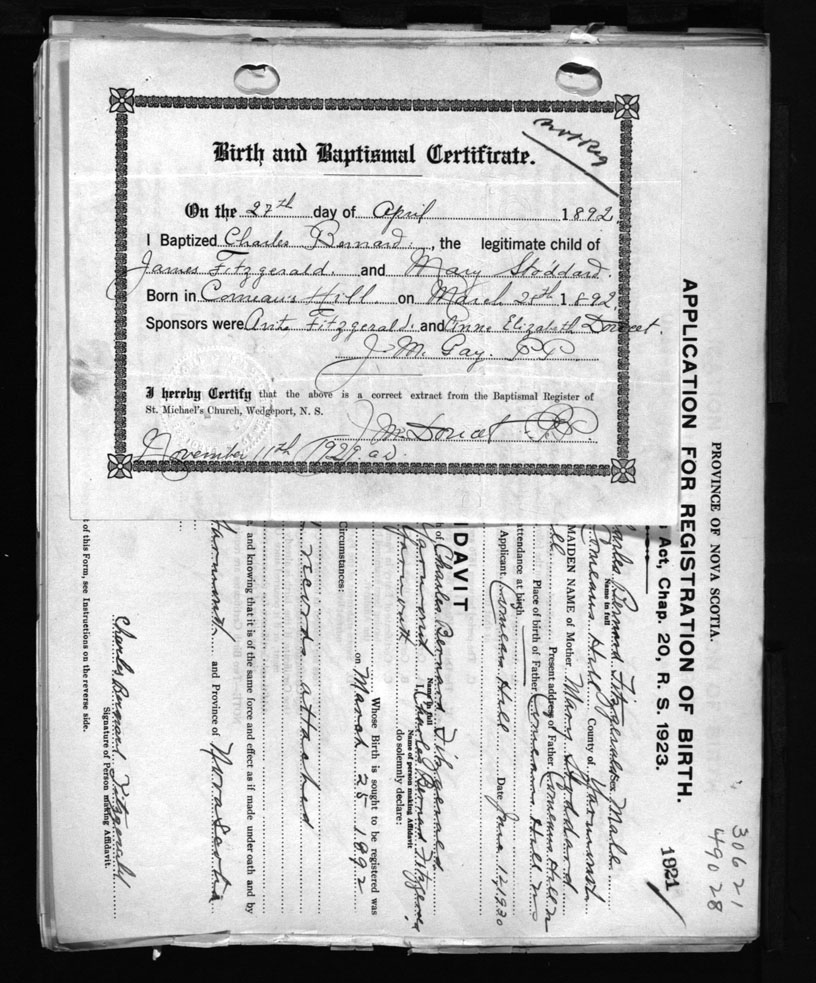 Birth and Baptismal Certificate.
On the 27th day of April 1892.
I Baptized Charles Bernard, the legitimate child of
James Fitzgerald. and Mary Stoddard.
Born in Comeau's Hill. on March 25th 1892.
Sponsors were Fitzgerald. and Anne Elizabeth Doucet.
J. M. Gay. PP
I hereby Certify that the above is a correct extract from the Baptismal Register of
St. Michael's Church, Wedgeport, N. S.
J M Doucet PP.
November 11th 1929. a.d.
PROVINCE OF NOVA SCOTIA.
APPLICATION FOR REGISTRATION OF BIRTH.
Act, Chap. 20, R. S. 1923.
30621
49028
1921
Charles Bernard Fitzgerald Male
Name in full
Comeaus Hill County of Yarmouth
MAIDEN NAME of Mother Mary Stoddard
Present address of Father Comeaus Hill N
Place of birth of Father Comeaus Hill N
attendance at birth
Applicant Comeaus Hill Date June 12 1930
IDAVIT
h of Charles Bernard Fitzgerald
Name in full
Yarmouth I, Charles Bernard Fitzgerald
Name of person making Affidavit
Yarmouth do solemnly declare:
Whose Birth is sought to be registered was
on March 25 1892
Circumstances:
records attached
and knowing that it is of the same force and effect as if made under oath and by
Yarmouth and Province of Nova Scotia
Charles Bernard Fitzgerald
Signature of Person making Affidavit.
t of this Form, see Instructions on the reverse side.